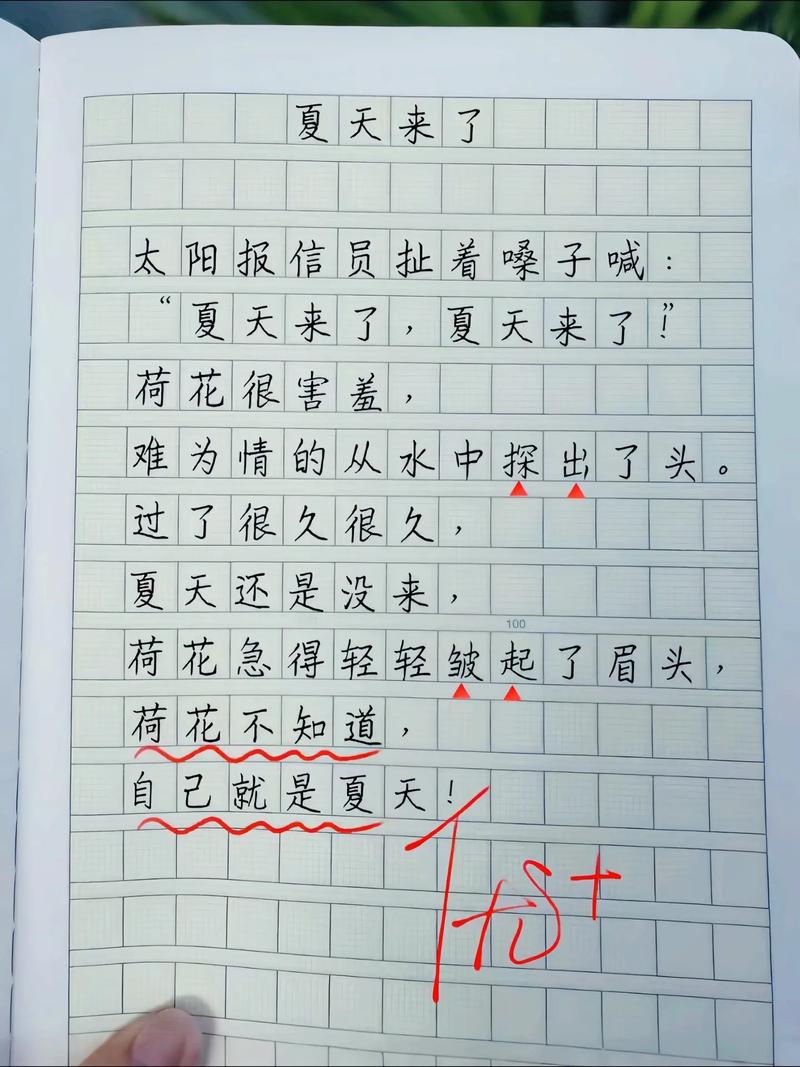 夏天来了
太阳报信员扯着嗓子喊：
“夏天来了，夏天来了！”
荷花很害羞，
难为情的从水中探出了头。
过了很久很久，
夏天还是没来，
100
荷花急得轻轻皱起了眉头，
荷花不知道，
自己就是夏天！
优+